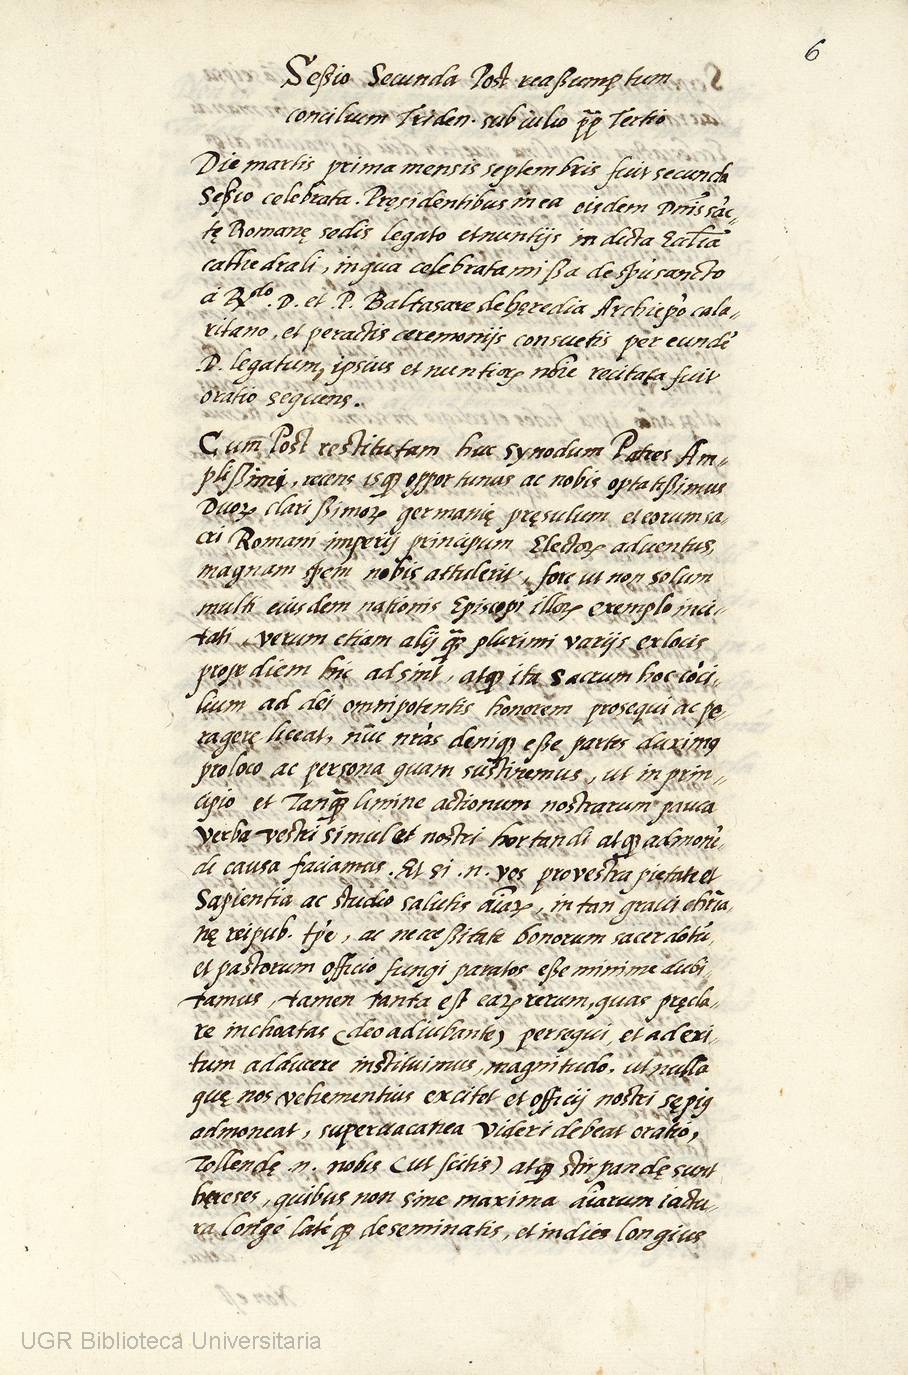 6
Seßio Secunda Post reaßumptum
concilium Triden. sub iulio pp̄ Tertio
Die martis prima mensis septembris fuit secunda
Seßio celebrata. Pręsidentibus in ea eisdem Dn̄is sāc„
tę Romanę sedis legato et nuntijs in dicta Eccl̄ia
cathedrali, in qua celebrata mißa de sp̄u sancto
à R.do D. et P. Baltasare de heredia Archiep̄o cala„
ritano, et peractis ceremonijs consuetis per eundē
D. legatum, ipsius et nuntioꝝ noīe recitata fuit
oratio sequens.
Cum Post restitutam huc synodum Patres Am„
plißimi, recens isqꝫ opportunus ac nobis optatißimus
Duoꝝ clarißimoꝝ germanię pręsulum et eorum sa„
cri Romani imperij principum Electoꝝ aduentus,
magnam spem nobis attulerit, fore ut non solum
multi eiusdem nationis Episcopi illoꝝ exemplo inci„
tati, verum etiam alij qꝫ plurimi varijs ex locis
prope diem huc adsint, atqꝫ ita sacrum hoc cōci„
lium ad dei omnipotentis honorem prosequi ac pe„
ragere liceat, nūc nr̄as deniqꝫ eße partes duximꝰ
pro loco ac persona quam sustinemus, ut in prin„
cipio et Tanqꝫ limine actionum nostrarum pauca
verba vestri simul et nostri hortandi atqꝫ admonē„
di causa faciamus. Et si .n. vos pro vestra pietate et
Sapientia ac studio salutis aīaꝝ, in tan graui chr̄ia„
nę reipub. tp̄e, ac neceßitate bonorum sacerdotū,
et pastorum officio fungi paratos eße minime dubi„
tamus, tamen tanta est eaꝝ rerum, quas pręcla„
re inchoatas (deo adiubante) persequi, et ad exi„
tum adducere instituimus, magnitudo, ut nulla
quę nos vehementius excitet et officij nostri sępiꝰ
admoneat, superuacanea videri debeat oratio,
Tollendę .n. nobis (ut scitis) atqꝫ stirpandę sunt
hereses, quibus non sine maxima aīarum iactu„
ra longè latèqꝫ deseminatis, et in dies longius
UGR Biblioteca Universitaria